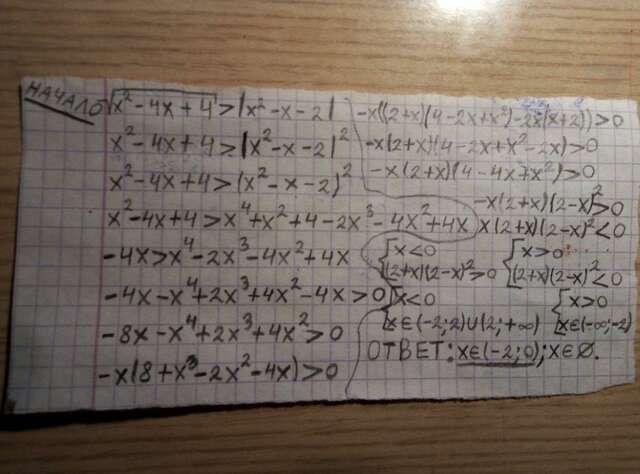 НАЧАЛО
√x² - 4x + 4 > |x² - x - 2|
x² - 4x + 4 > |x² - x - 2|²
x² - 4x + 4 > (x² - x - 2)²
x² - 4x + 4 > x⁴ + x² + 4 - 2x³ - 4x² + 4x
-4x > x⁴ - 2x³ - 4x² + 4x
-4x - x⁴ + 2x³ + 4x² - 4x > 0
-8x - x⁴ + 2x³ + 4x² > 0
-x(8 + x³ - 2x² - 4x) > 0
-x((2+x)(4 - 2x + x²) - 2x(x+2)) > 0
-x(2+x)(4 - 2x + x² - 2x) > 0
-x(2+x)(4 - 4x + x²) > 0
-x(2+x)(2-x)² > 0
x(2+x)(2-x)² < 0
{x < 0 {x > 0
(2+x)(2-x)² > 0 (2+x)(2-x)² < 0
{x < 0 {x > 0
x∈(-2; 2)∪(2; +∞) x∈(-∞; -2)
ОТВЕТ: x∈(-2; 0); x∈∅.